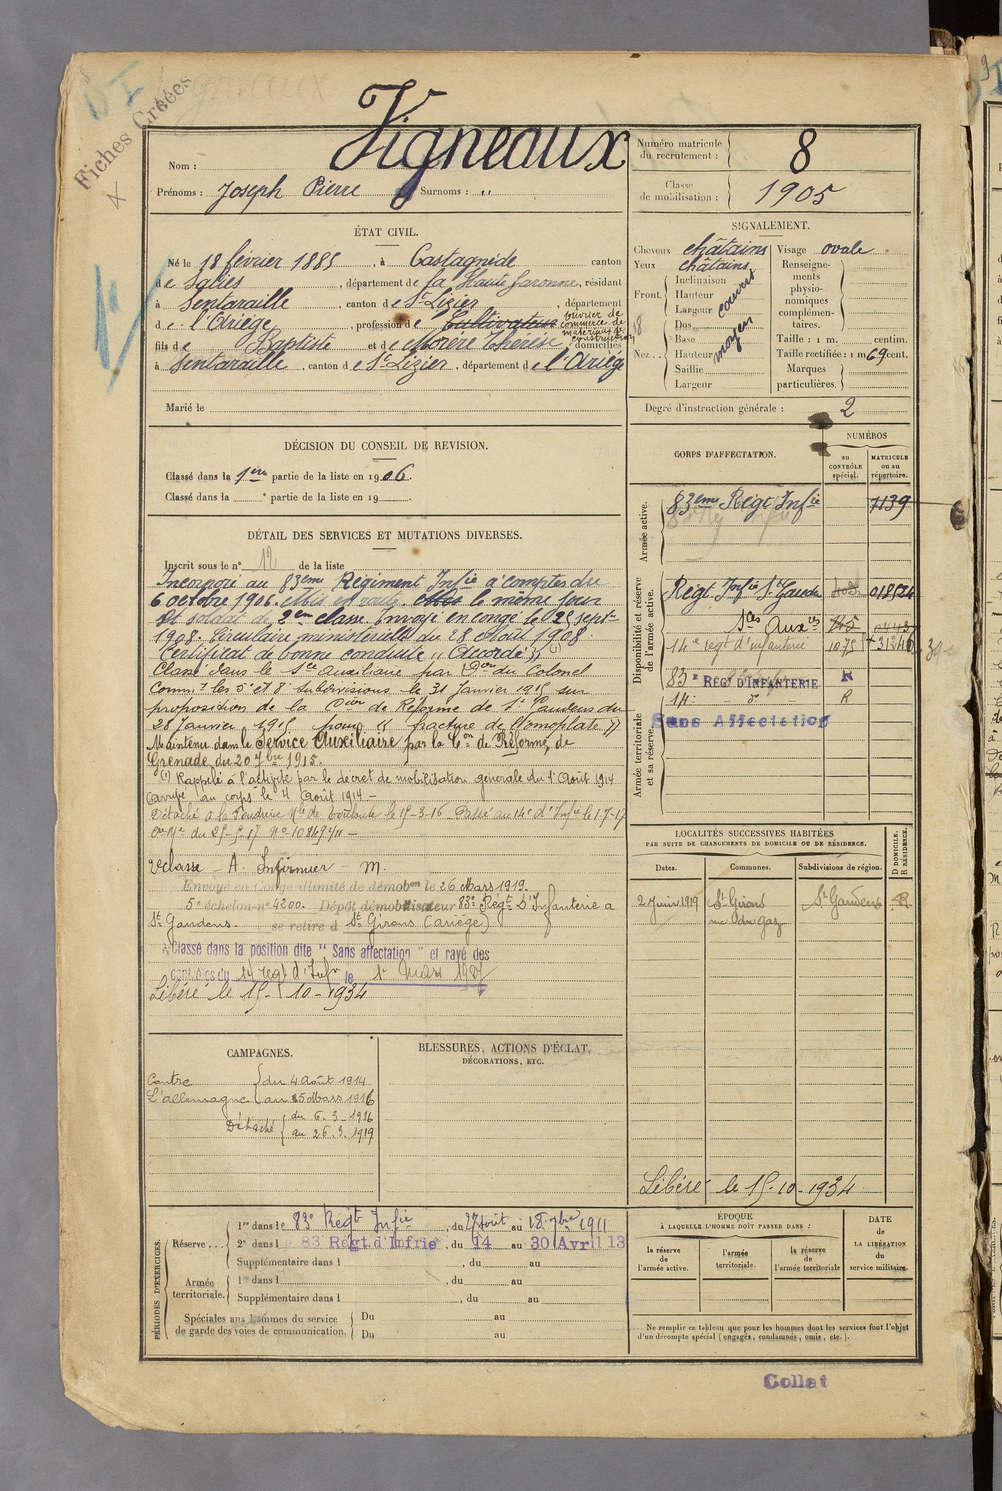 Fiches Créées
Nom : Vigneaux
Prénoms : Joseph Pierre Surnoms : ,,
Numéro matricule du recrutement : 8
Classe de mobilisation : 1905
ÉTAT CIVIL.
Né le 18 février 1885, à Castagnède canton
de Salies, département de la Haute Garonne, résidant
à Sentaraille, canton de St Lizier, département
de l'Ariège, profession de Cultivateur ouvrier de commerce de matériaux de construction
fils de Baptiste et de Morère Thérèse, domiciliés
à Sentaraille, canton de St Lizier, département de l'Ariège
Marié le
SIGNALEMENT.
Cheveux châtains Visage ovale
Yeux châtains
Front. Inclinaison Hauteur Largeur couvert
Nez. Dos Base Hauteur Saillie Largeur moyen
Renseignements physionomiques complémentaires.
Taille : 1 m. centim.
Taille rectifiée : 1 m 69 cent.
Marques particulières.
Degré d'instruction générale : 2
DÉCISION DU CONSEIL DE REVISION.
Classé dans la 1ère partie de la liste en 1906.
Classé dans la ° partie de la liste en 19
DÉTAIL DES SERVICES ET MUTATIONS DIVERSES.
Inscrit sous le n° 12 de la liste
Incorporé au 83eme Régiment Infie à compter du
6 octobre 1906. le même jour
soldat de 2eme classe. Envoyé en congé le 25 septe
1908. Circulaire ministérielle du 28 Août 1908.
Certificat de bonne conduite "Accordé" (1)
Classé dans le Sce auxiliaire par Don du Colonel
Commt les 5e et 8e subdivisions le 31 Janvier 1915 sur
proposition de la Con de Réforme de St Gaudens du
28 Janvier 1915 pour "fracture de l'omoplate"
Maintenu dans le Service Auxiliaire par la Con de Réforme de
Grenade du 20 7bre 1915.
(1) Rappelé à l'activité par le décret de mobilisation générale du 1er Août 1914
Arrivé au corps le 4 Août 1914 –
Détaché à la Poudrerie Nle de Toulouse le 15-3-16 – Passé au 14e d'Infie le 1-7-17
– A. Infirmier – M.
Envoyé en Congé illimité de démobon le 26 Mars 1919.
5e échelon n° 4200. Dépôt démobilisateur 83e Régt D'Infanterie à
St Gaudens. se retire à St Girons (Ariège)
Classé dans la position dite "Sans affectation" et rayé des
contrôles du 14 régt d'Infie le 1er Mars 1927
Libéré le 15-10-1934
CORPS D'AFFECTATION.
NUMÉROS
AU CONTRÔLE spécial.
MATRICULE ou au répertoire.
Armée active.
83eme Régt Infie 7139
Disponibilité et réserve de l'armée active.
Régt Infie St Gaudens 018524
Sces Auxres
14e régt d'infanterie 1075
83e RÉGt D'INFANTERIE R
14e – d° – R
Armée territoriale et sa réserve.
Sans Affectation
LOCALITÉS SUCCESSIVES HABITÉES
PAR SUITE DE CHANGEMENTS DE DOMICILE OU DE RÉSIDENCE.
Dates. Communes. Subdivisions de région. D DOMICILE. R RÉSIDENCE.
2 Juin 1919 St Girons St Gaudens R
rue du gaz
Libéré le 15-10-1934
CAMPAGNES.
Contre l'allemagne du 4 Août 1914
au 15 Mars 1916
Détaché du 6.3.1916
au 26.3.1919
BLESSURES, ACTIONS D'ÉCLAT,
DÉCORATIONS, ETC.
PÉRIODES D'EXERCICES.
Réserve.... 1re dans le 83e Régt Infie, du 27 août au 18 7bre 1911
2e dans l 83 Régt. d'Infrie, du 14 au 30 Avril 13
Supplémentaire dans l , du au
Armée territoriale. 1re dans l , du au
Supplémentaire dans l , du au
Spéciales aux hommes du service de garde des voies de communication. Du au
Du au
ÉPOQUE
À LAQUELLE L'HOMME DOIT PASSER DANS :
la réserve de l'armée active.
l'armée territoriale.
la réserve de l'armée territoriale
DATE de LA LIBÉRATION du service militaire.
Ne remplir ce tableau que pour les hommes dont les services font l'objet
d'un décompte spécial (engagés, condamnés, omis, etc.).
Collat